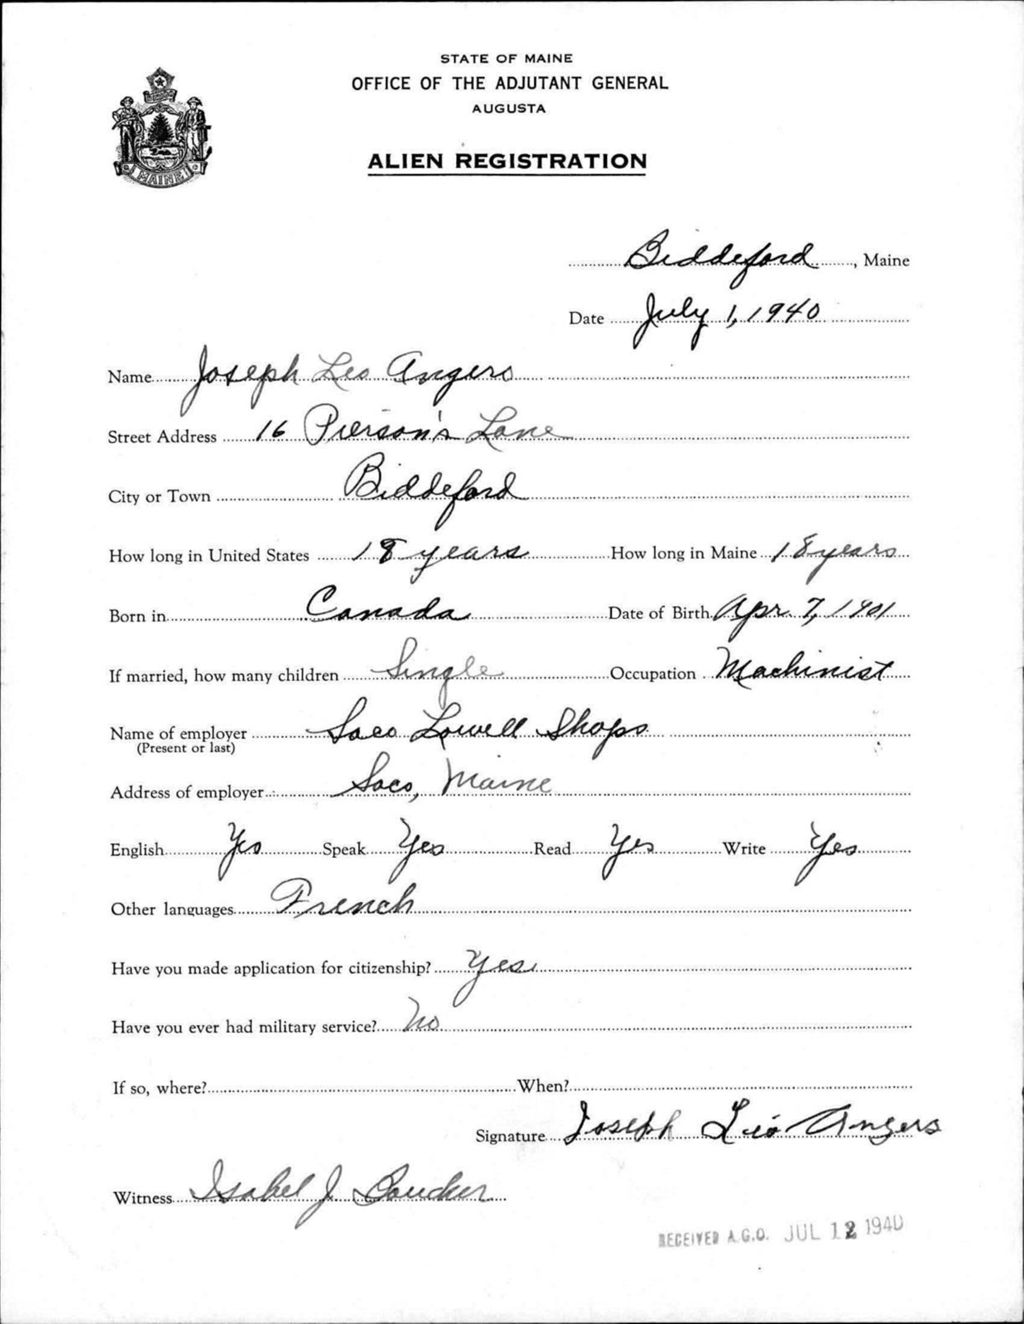 STATE OF MAINE
OFFICE OF THE ADJUTANT GENERAL
AUGUSTA
ALIEN REGISTRATION
MAINE
Biddeford, Maine
Date July 1, 1940
Name Joseph Leo Angers
Street Address 16 Pierson's Lane
City or Town Biddeford
How long in United States 18 years How long in Maine 18 years
Born in Canada Date of Birth Apr 7, 1901
If married, how many children Single Occupation Machinist
Name of employer Saco Lowell Shops
(Present or last)
Address of employer Saco, Maine
English Yes Speak Yes Read Yes Write Yes
Other languages French
Have you made application for citizenship? Yes
Have you ever had military service? No
If so, where? When?
Signature Joseph Léo Angers
Witness Isabel J.
RECEIVED A.G.O. JUL 12 1940